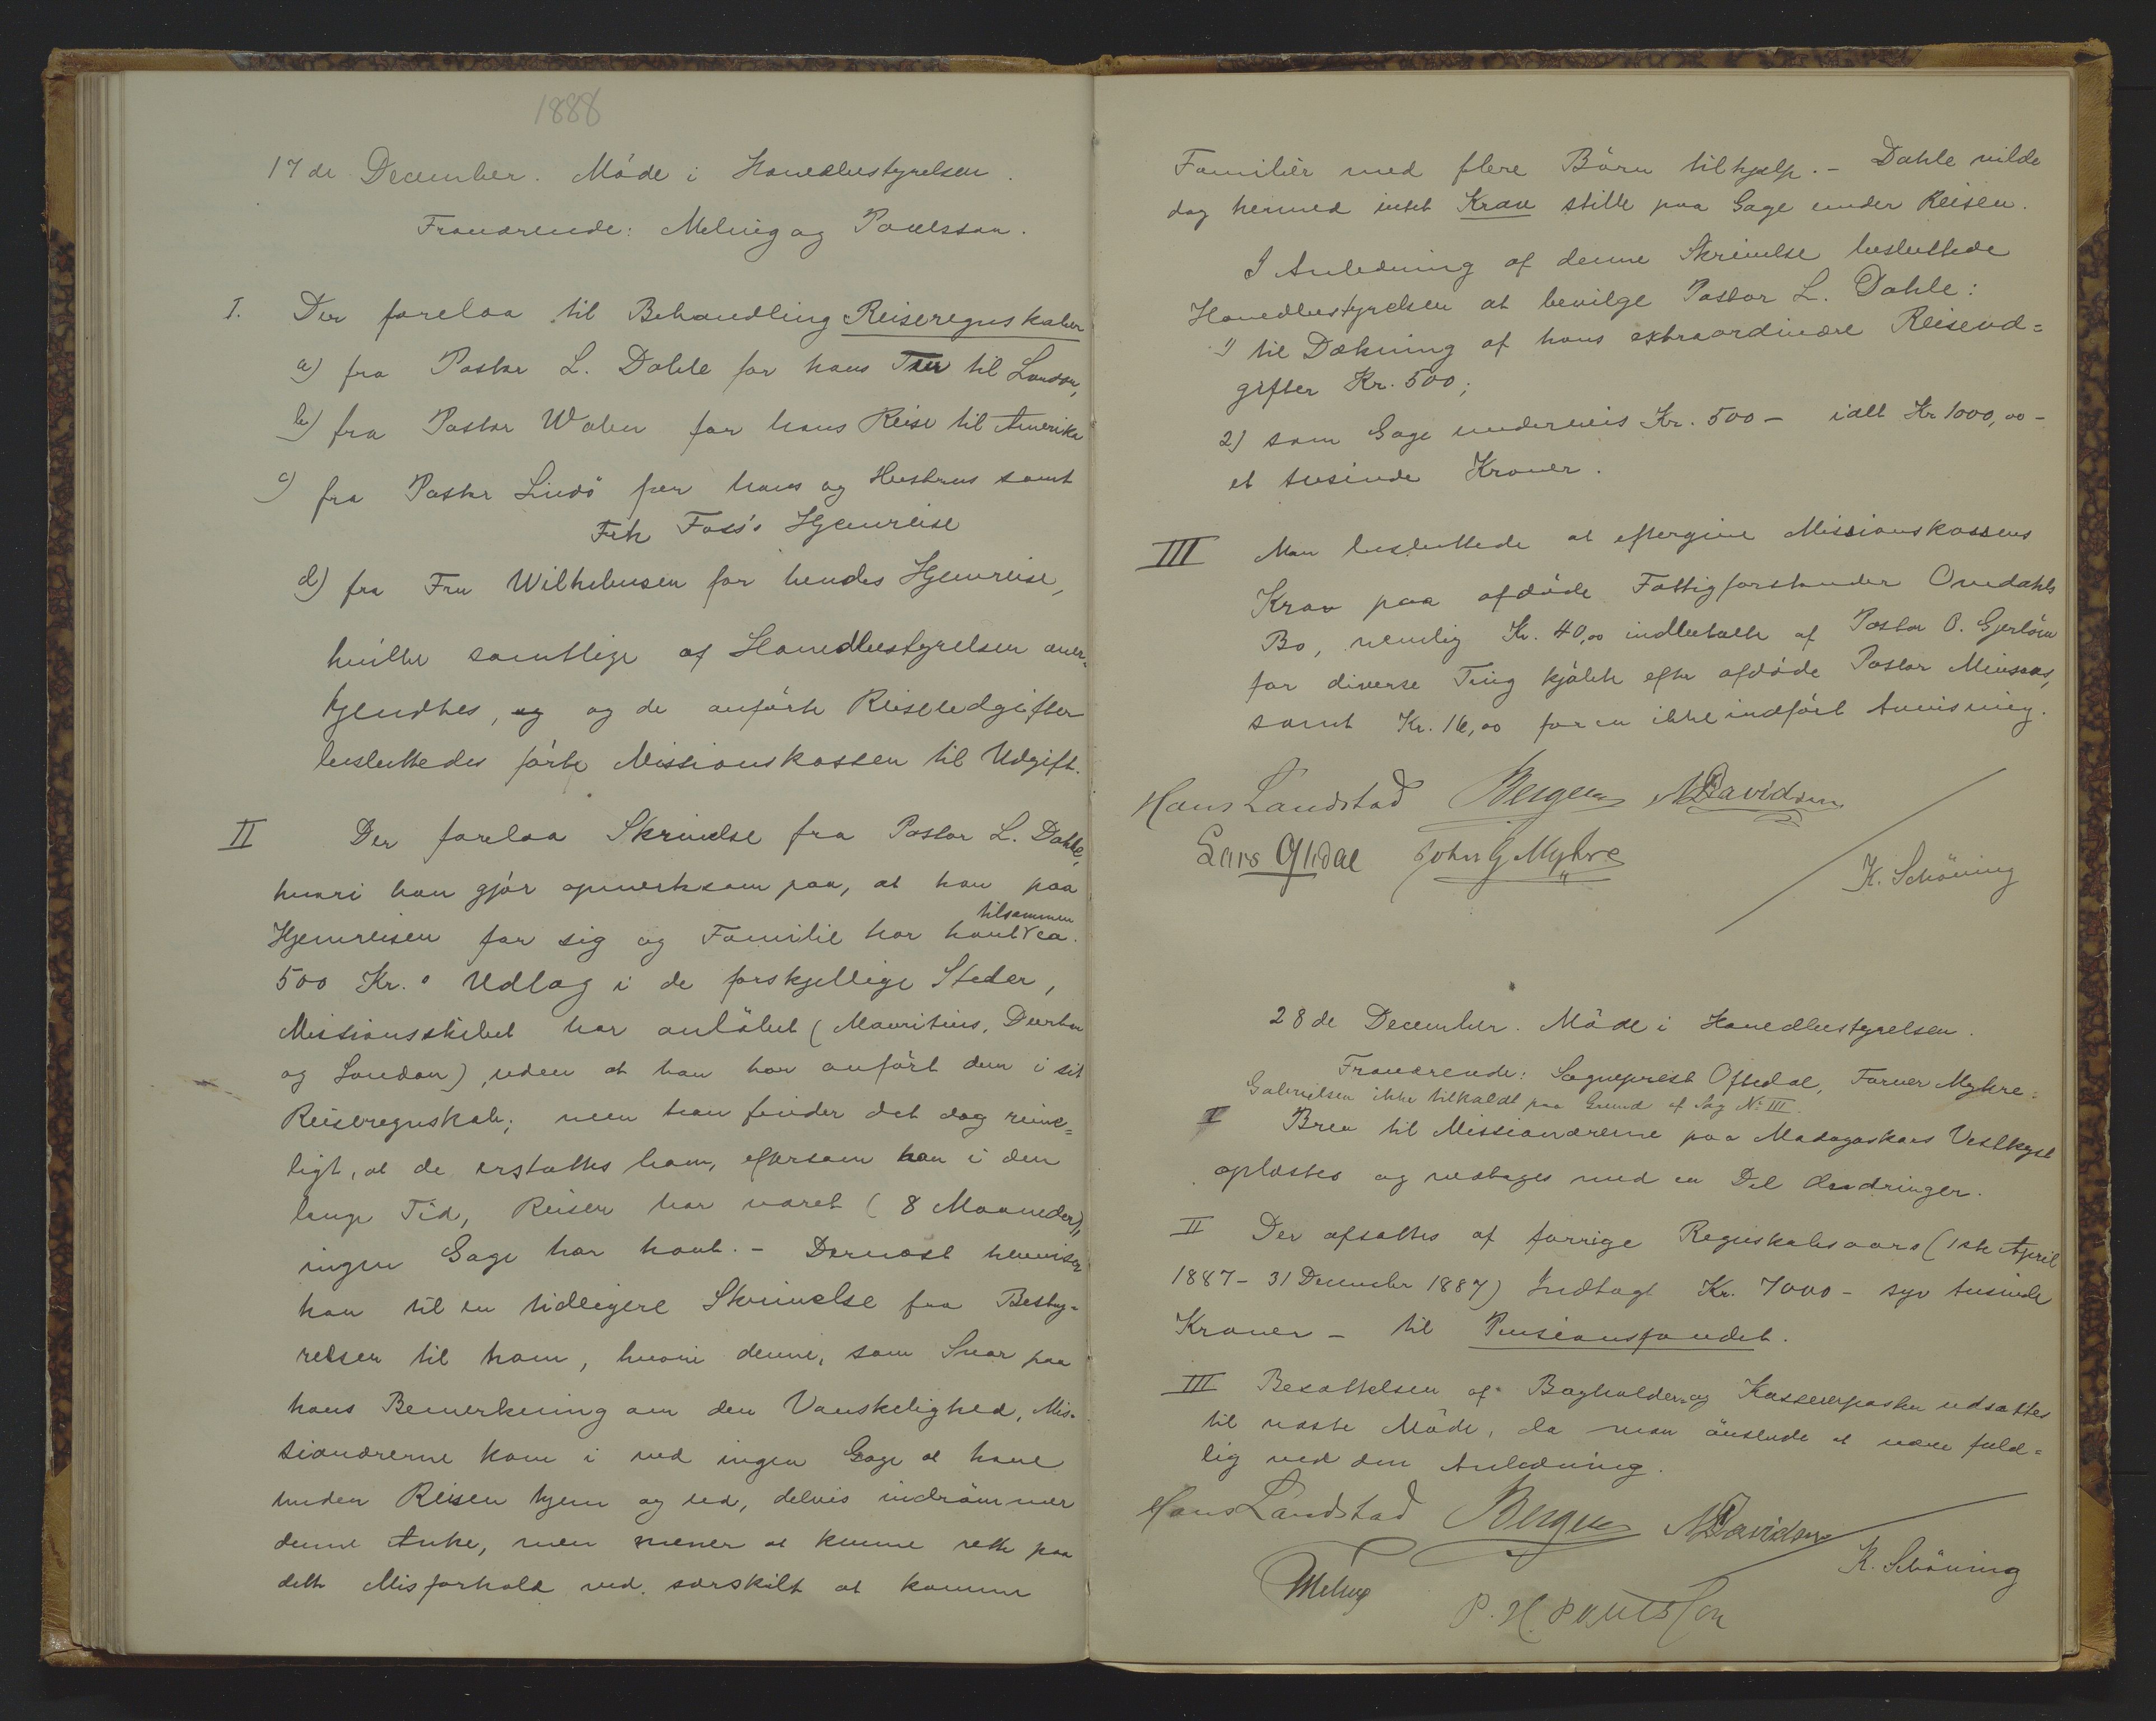 1888
17de December. Möde i Hovedbestyrelsen.
Fraværende: Melving og Poulsson.
I. Der forelaa til Behandling Reiseregnskaber
a) fra Pastor L. Dahle for hans Tur til London,
b) fra Pastor Walen for hans Reise til Amerika
c) fra Pastor Lindö for hans og Hustrus samt
Frk Foss's Hjemreise
d) fra Fru Wilhelmsen for hendes Hjemreise,
hvilke samtlige af Hovedbestyrelsen aner-
kjendtes, og og de anförte Reiseudgifter
besluttedes förte Missionskassen til Udgift.
II Der forelaa Skrivelse fra Pastor L. Dahle,
hvori han gjör opmerksom paa, at han paa
Hjemreisen for sig og Familie har havt tilsammen ca.
500 Kr.s Udlæg i de forskjellige Steder,
Missionsskibet har anlöbet (Mauritius, Durban
og London), uden at han har anfört dem i sit
Reiseregnskab; men han finder det dog rime=
ligt, at de erstattes ham, eftersom han i den
lange Tid, Reisen har varet (8 Maaneder),
ingen Gage har havt. - Dernæst henviser
han til en tidligere Skrivelse fra Besty-
relsen til ham, hvori denne, som Svar paa
hans Bemerkning om den Vanskelighed, Mis-
sionærerne kom i ved ingen Gage at have
under Reisen hjem og ud, delvis indrömmer
denne Anke, men mener at kunne rette paa
dette Misforhold ved særskilt at komme
Familiër med flere Börn tilhjælp. - Dahle vilde
dog hermed intet Krav stille paa Gage under Reisen.
I Anledning af denne Skrivelse besluttede
Hovedbestyrelsen at bevilge Pastor L. Dahle:
1) til Dækning af hans extraordinære Reiseud=
gifter Kr. 500;
2) som Gage underveis Kr. 500 - ialt Kr 1000,00 -
et tusinde Kroner.
III Man besluttede at eftergive Missionskassens
Krav paa afdöde Fattigforstander Omdahls
Bo, nemlig Kr. 40,00 indbetalt af Pastor O. Gjerlöw
for diverse Ting kjöbte efter afdöde Pastor Minsaas,
samt Kr. 16,00 for en ikke indfört Anvisning.
Hans Landstad Bergen N Davidsen
Lars Oftdal John G Myhre
K. Schöning
28de December. Möde i Hovedbestyrelsen.
Fraværende: Sogneprest Oftedal, Farver Myhre.
Gabrielsen ikke tilkaldt paa Grund af Sag No III.
I Brev til Missionærerne paa Madagaskars Vestkyst
oplæstes og vedtoges med en Del Ændringer.
II Der afsattes af forrige Regnskabsaars (1ste April
1887 - 31 December 1887) Indtægt Kr. 7000 - syv tusinde
Kroner - til Pensionsfondet.
III Besættelsen af Bogholder- og Kassererposten udsattes
til næste Möde, da man önskede at være fuld=
lig ved den Anledning.
Hans Landstad Bergen N Davidsen
K. Schöning
Melving
P. H. Poulsson